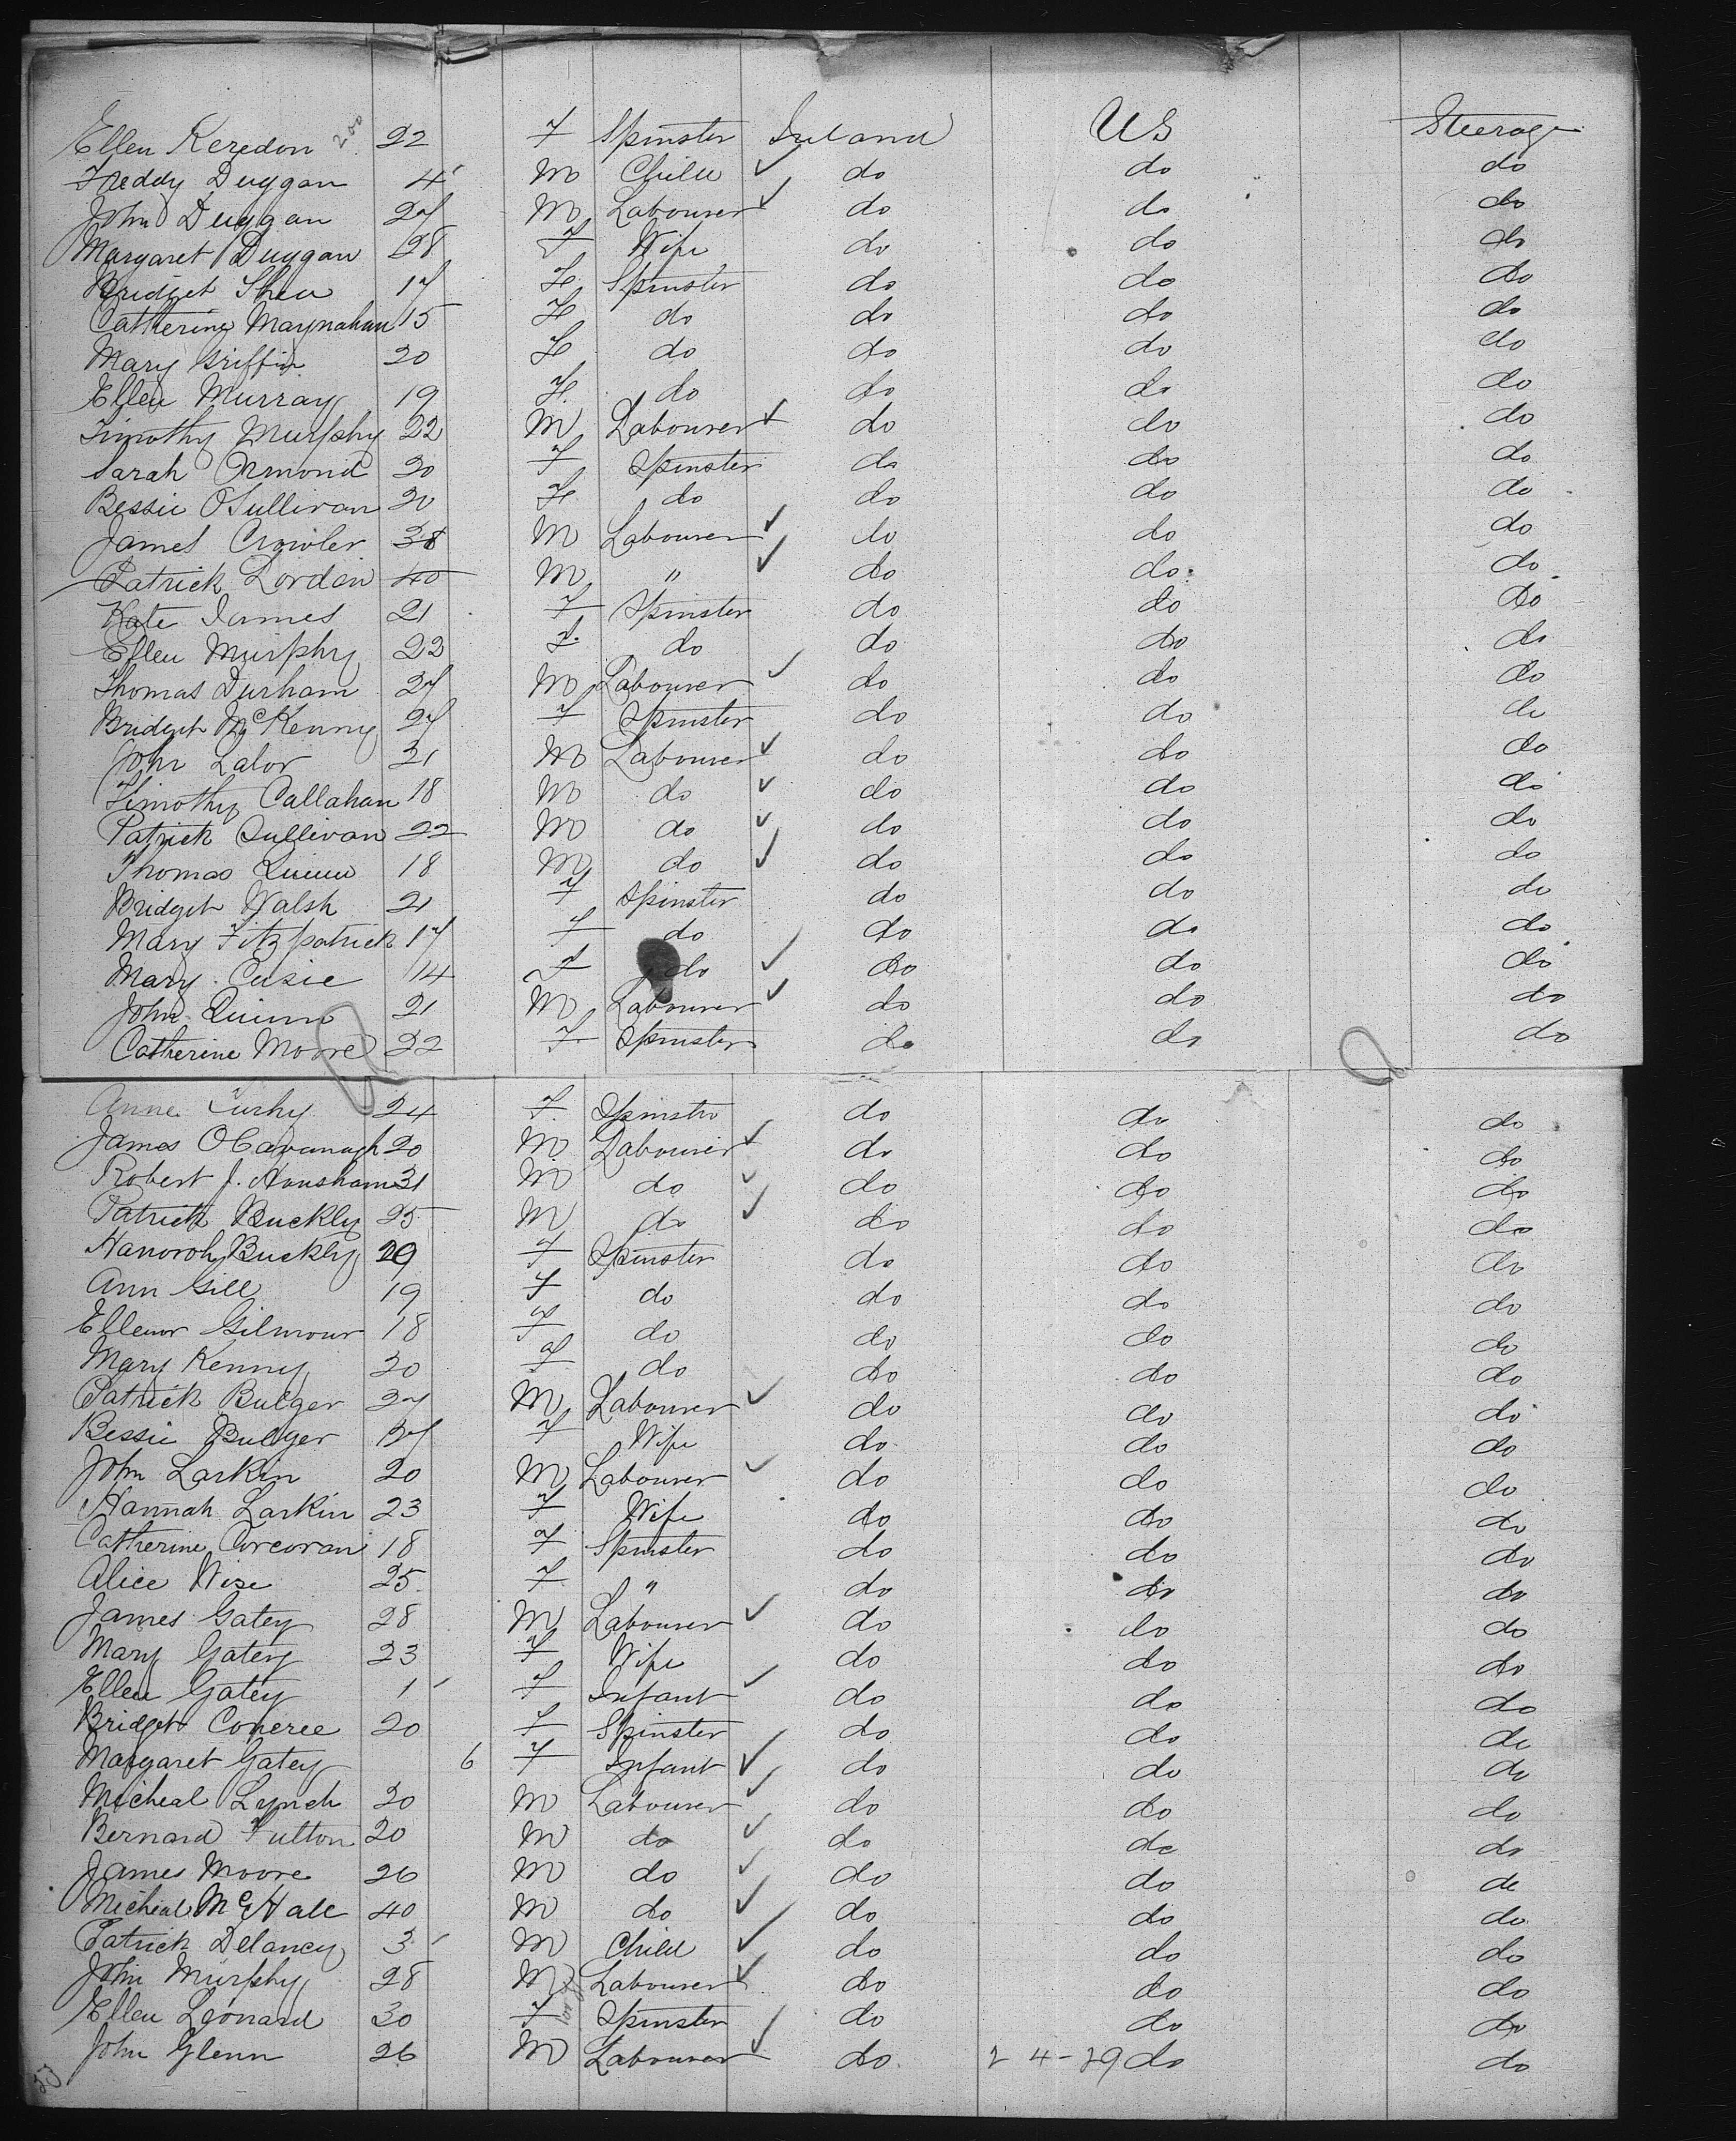 Ellen Keredon 200 22 F Spinster Ireland US Steerage
Freddy Duggan 4 M Child ✓ do do do
John Duggan 27 M Labourer ✓ do do do
Margaret Duggan 28 F Wife do do do
Bridget Shea 17 F Spinster do do do
Catherine Maynahan 15 F do do do do
Mary Griffin 20 F do do do do
Ellen Murray 19 F do do do do
Timothy Murphy 22 M Labourer ✓ do do do
Sarah Ormond 20 F Spinster do do do
Bessie OSullivan 20 F do do do do
James Crowler 38 M Labourer ✓ do do do
Patrick Lordan 40 M " ✓ do do do
Kate James 21 F Spinster do do do
Ellen Murphy 22 F do do do do
Thomas Durham 27 M Labourer ✓ do do do
Bridget McKenny 27 F Spinster do do do
John Lalor 21 M Labourer ✓ do do do
Timothy Callahan 18 M do ✓ do do do
Patrick Sullivan 22 M do ✓ do do do
Thomas Quinn 18 M do ✓ do do do
Bridget Walsh 21 F Spinster do do do
Mary Fitzpatrick 17 F do do do do
Mary Cusie 14 F do ✓ do do do
John Quinn 21 M Labourer ✓ do do do
Catherine Moore 22 F Spinster do do do
Anne 24 F Spinster do do do
James OCavanagh 20 M Labourer ✓ do do do
Robert J. Hunsham 31 M do ✓ do do do
Patrick Buckly 25 M do ✓ do do do
Hanorah Buckly 29 F Spinster do do do
Ann Gill 19 F do do do do
Ellenor Gilmour 18 F do do do do
Mary Kenny 20 F do do do do
Patrick Bulger 27 M Labourer ✓ do do do
Bessie Bulger 27 F Wife do do do
John Larkin 20 M Labourer ✓ do do do
Hannah Larkin 23 F Wife do do do
Catherine Corcoran 18 F Spinster do do do
Alice Wise 25 F " do do do
James Gatey 28 M Labourer ✓ do do do
Mary Gatey 23 F Wife do do do
Ellen Gatey 1 F Infant ✓ do do do
Bridget Coneree 20 F Spinster do do do
Margaret Gatey 6 F Infant ✓ do do do
Micheal Lynch 20 M Labourer ✓ do do do
Bernard Fulton 20 M do ✓ do do do
James Moore 26 M do ✓ do do do
Micheal McHale 40 M do ✓ do do do
Patrick Delancy 3 M Child ✓ do do do
John Murphy 28 M Labourer ✓ do do do
Ellen Leonard 30 F Spinster ✓ do do do
John Glenn 26 M Labourer ✓ do 2 4-29 do do